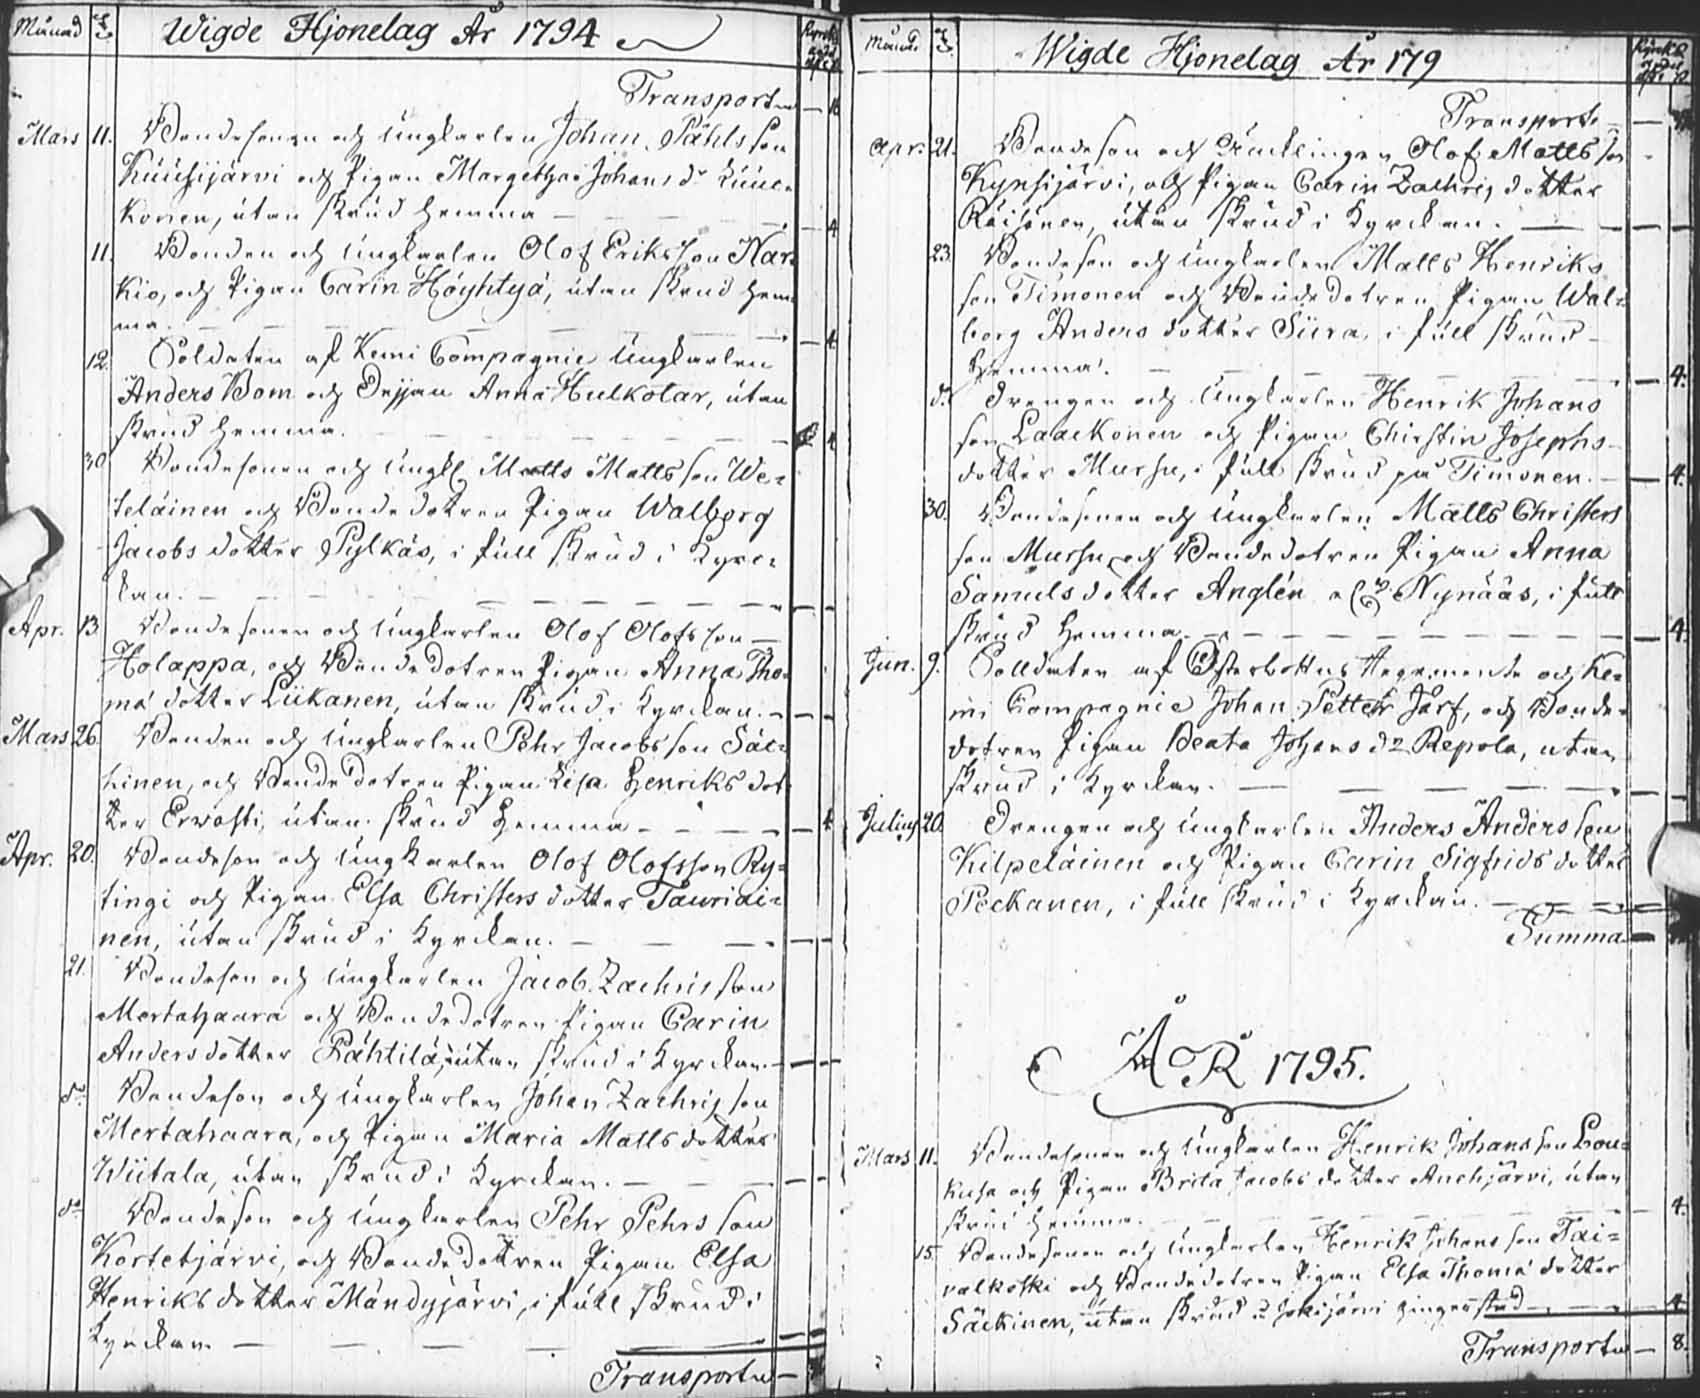 Månad
Wigde Hjonelag År 1794
Transport
Mars 11. Bondesonen och Ungkarlen Johan Påhlsson
Kuusijärvi och Pigan Margetha Johans dr
konen, utan skrud hemma 4
11. Bonden och Ungkarlen Olof Eriksson Kar=
kio, och Pigan Carin Höyhtyä, utan skrud hem=
ma. 4
12. Soldaten af Kemi Compagnie Ungkarlen
Anders Bom och Anna Hulkotar, utan
skrud hemma. 4
30 Bondesonen och Ungk. Matts Mattsson We=
teläinen och Bondedotren Pigan Walborg
Jacobs dotter Pylkäs, i full skrud i Kyrc=
kan.
Apr. 13. Bondesonen och Ungkarlen Olof Olofsson
Holappa, och Bondedotren Pigan Anna Tho=
mæ dotter Liikanen, utan skrud i Kyrckan.
Mars 26. Bonden och Ungkarlen Pehr Jacobsson Säc=
kinen, och Bondedotren Pigan Lisa Henriks dot=
ter Erwasti, utan skrud hemma 4
Apr. 20. Bondeson och Ungkarlen Olof Olofsson Ry=
tingi och Pigan Elsa Christers dotter Tauriai=
nen, utan skrud i Kyrckan.
21. Bondeson och Ungkarlen Jacob Zachrisson
Mertahaara och Bondedotren Pigan Carin
Anders dotter Pähtilä, utan skrud i Kyrckan.
do Bondeson och Ungkarlen Johan Zachrisson
Mertahaara, och Pigan Maria Matts dotter
Wiitala, utan skrud i Kyrckan.
do Bondeson och Ungkarlen Pehr Pehrsson
Kortehjärvi, och Bondedottren Pigan Elsa
Henriks dotter Mändyjärvi, i full skrud i
Kyrckan
Transport
Månad
Wigde Hjonelag År 179
Transport
Apr. 21. Bondeson och Enklingen Olof Mattsson
Kynsijärvi, och Pigan Carin Zachris dotter
Räisänen, utan skrud i Kyrckan.
23. Bondeson och Ungkarlen Matts Henriks
son Timonen och Bondedotren Pigan Wal=
borg Anders dotter Siira, i full skrud
hemma. 4.
do. Drengen och Ungkarlen Henrik Johans
son Laackonen och Pigan Chirstin Josephs
dotter Mursu, i full skrud på Timonen. 4.
30. Bondesonen och Ungkarlen Matts Christers
son Mursu och Bondedotren Pigan Anna
Samuels dotter Anglén Nynääs, i full
skrud hemma. 4.
Jun. 9. Solldaten af Österbottns Regemente och Ke=
mi Compagnie Johan Petter Järf, och Bonde=
dotren Pigan Beata Johans dr Repola, utan
skrud i Kyrckan.
Julius 20. Drengen och Ungkarlen Anders Andersson
Kilpeläinen och Pigan Carin Sigfrids dotter
Peckanen, i full skrud i Kyrckan.
Summa
ÅR 1795.
Mars 11. Bondesonen och Ungkarlen Henrik Johansson Lou=
kusa och Pigan Brita Jacobs dotter Auchjärvi, utan
skrud hemma. 4.
15. Bondesonen och Ungkarlen Henrik Johansson Tai=
valkoski och Bondedotren Pigan Elsa Thomæ dotter
Säckinen, utan skrud i Jokijärvi 4
Transport 8.